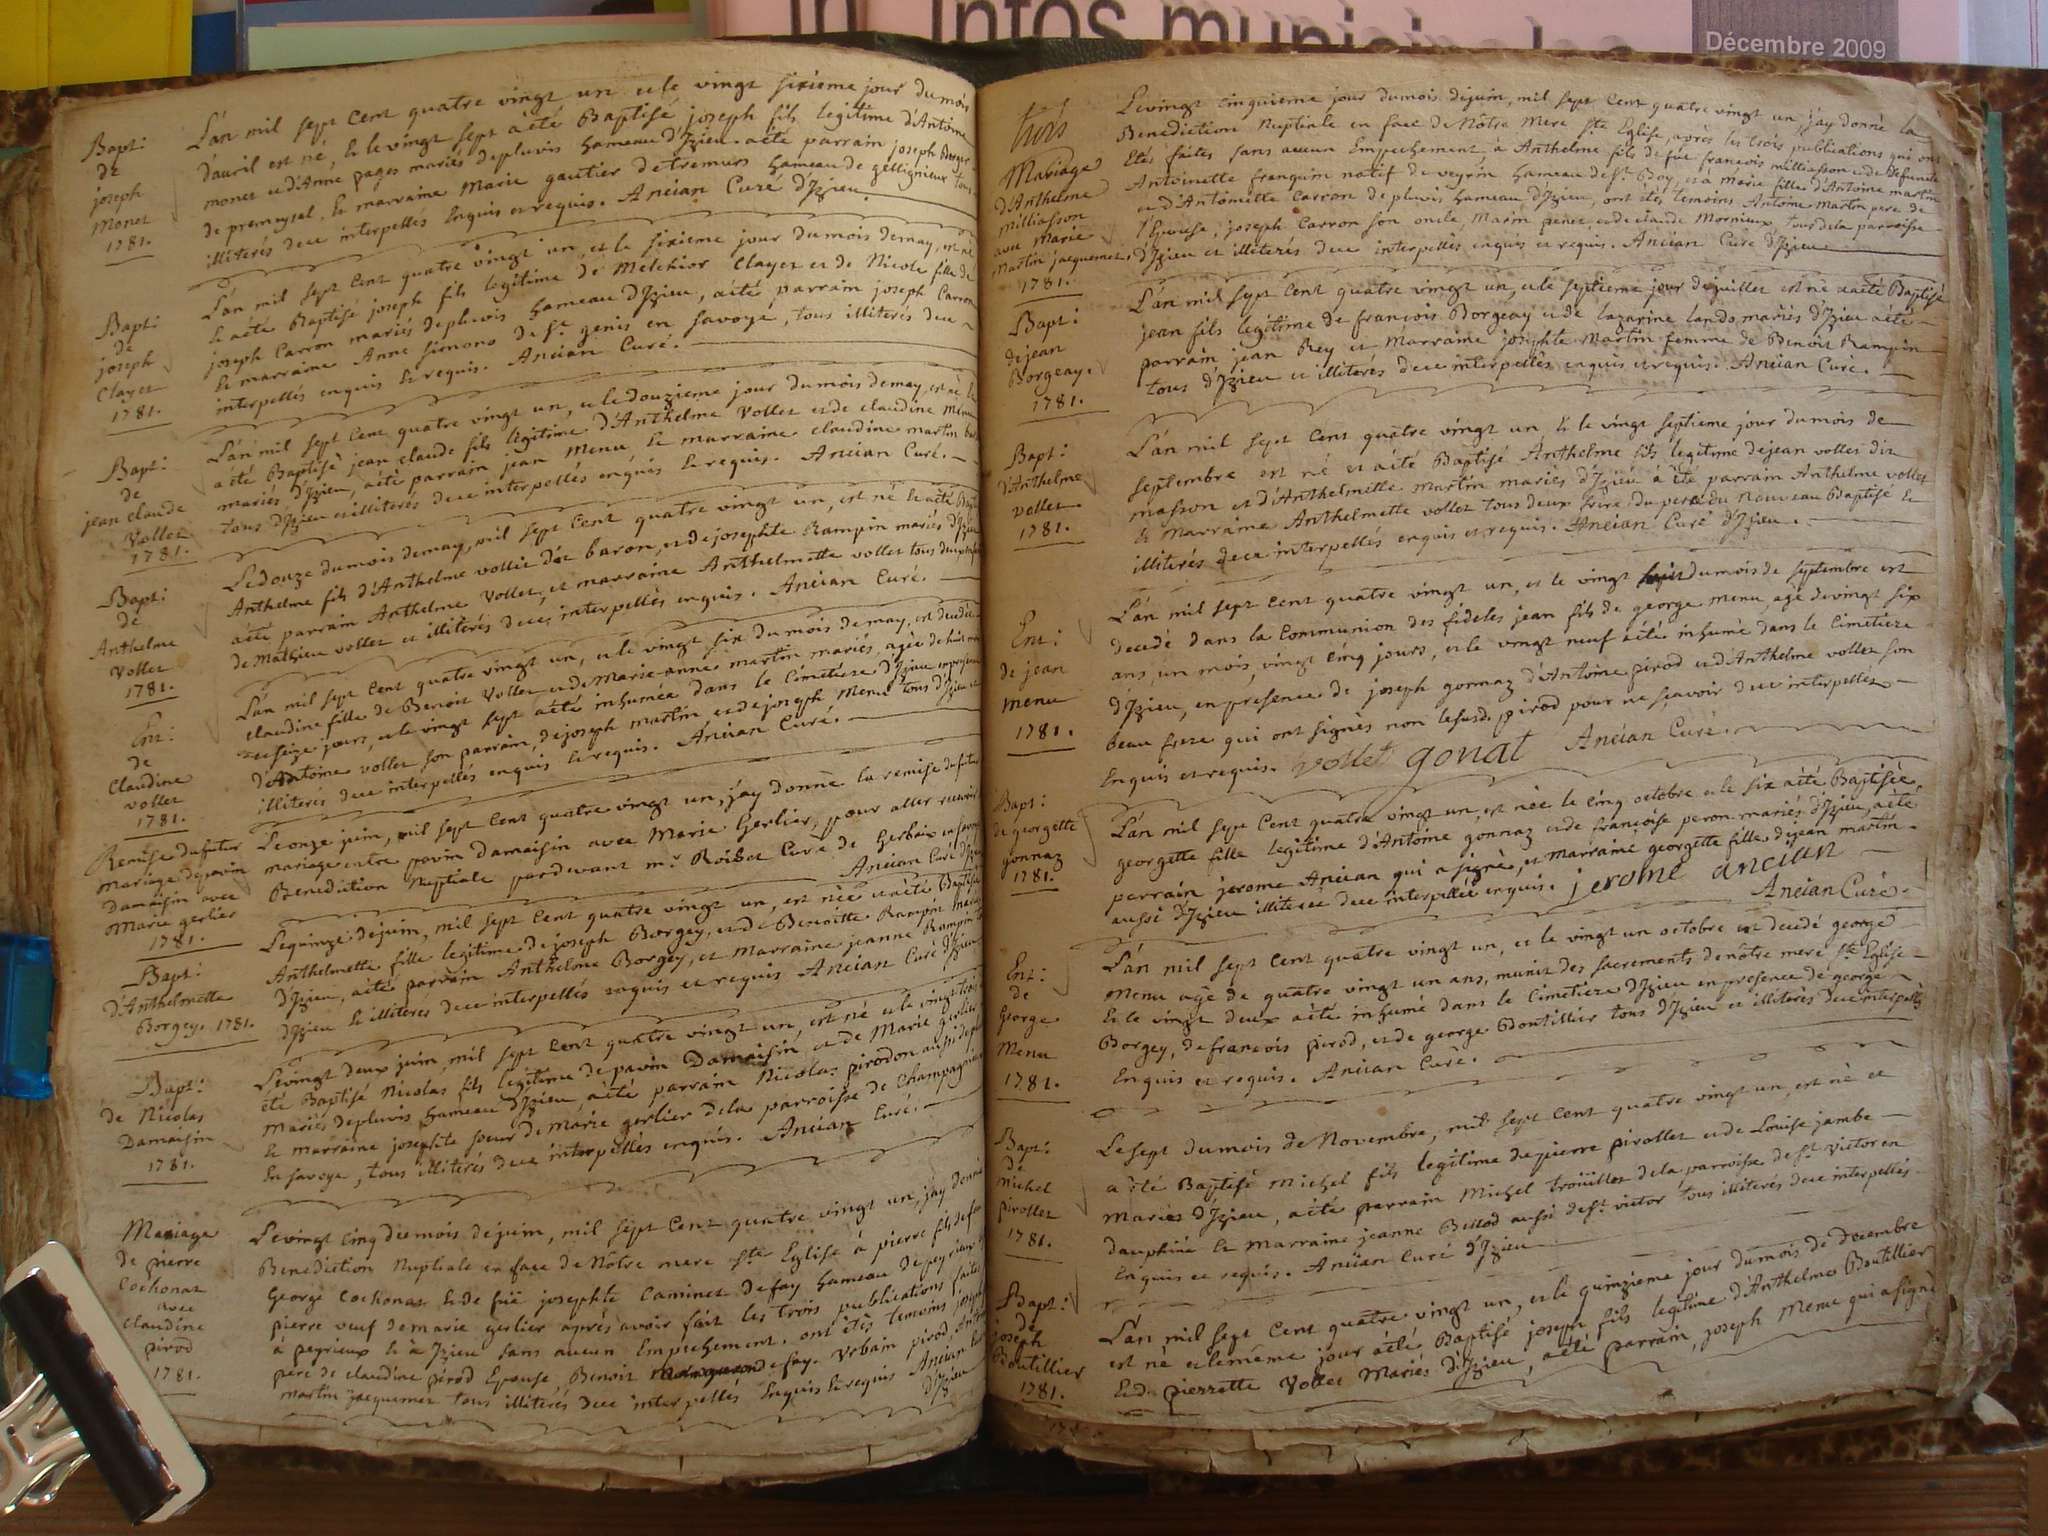 Infos municipales
Décembre 2009
Bapt:
de
joseph
Monet
1781.
L'an mil sept cent quatre vingt un et le vingt sixieme jour du mois
d'avril est né, & le vingt sept a été Baptisé joseph fils legitime d'Antoine
monet et d'Anne pages mariés de pluvis hameau d'Izieu. a été parrain joseph
de premeysel, & marraine Marie gautier de tremurs hameau de gelignieux tous
illiterés de ce interpellés Enquis et requis. Ancian Curé d'Izieu
Bapt:
de
joseph
Clayet
1781.
L'an mil sept cent quatre vingt un, et le sixieme jour du mois de may, est né
& a été Baptisé joseph fils legitime de Melchior Clayet et de Nicole fille de
joseph Carron mariés de pluvis hameau d'Izieu, a été parrain joseph Carron
& marraine Anne simono de St. genis en savoye, tous illiterés de ce
interpellés enquis & requis. Ancian Curé.
Bapt:
de
jean claude
Vollet
1781.
L'an mil sept cent quatre vingt un, et le douzieme jour du mois de may, est né &
a été Baptisé jean claude fils legitime d'Anthelme Vollet et de claudine Menu
mariés d'Izieu, a été parrain jean Menu & marraine claudine martin
tous d'Izieu et illiterés de ce interpellés enquis & requis. Ancian Curé.
Bapt:
de
Anthelme
Vollet
1781.
Le douze du mois de may, mil sept cent quatre vingt un, est né & a été
Anthelme fils d'Anthelme vollet dit baron, et de josephte Rampin mariés d'Izieu
a été parrain Anthelme Vollet, et marraine Anthelmette vollet tous deux
de Mathieu vollet et illiterés de ce interpellés enquis. Ancian Curé.
Ent:
de
Claudine
vollet
1781.
L'an mil sept cent quatre vingt un, et le vingt six du mois de may, est decedée
claudine fille de Benoit Vollet et de Marie-anne martin mariés, agée de huit
et seize jours, et le vingt sept a été inhumée dans le cimetiere d'Izieu
d'Antoine vollet son parrain, de joseph martin et de joseph Menu tous d'Izieu
illiterés de ce interpellés enquis & requis. Ancian Curé.
Remise du futur
mariage de pavin
Damaisin avec
Marie gerlier
1781.
Le onze juin, mil sept cent quatre vingt un, j'ay donné la remise du futur
mariage entre pavin Damaisin avec Marie Gerlier, pour aller recevoir
Benediction Nuptiale pardevant mr. Roibet Curé de Gerbaix en savoye
Ancian Curé d'Izieu
Bapt:
d'Anthelmette
Borgey. 1781.
Le quinze de juin, mil sept cent quatre vingt un, est née et a été Baptisée
Anthelmette fille legitime de joseph Borgey, et de Benoitte Rampin
d'Izieu, a été parrain Anthelme Borgey, et Marraine jeanne Rampin
d'Izieu & illiterés de ce interpellés enquis et requis Ancian Curé d'Izieu
Bapt:
de Nicolas
Damaisin
1781.
Le vingt deux juin, mil sept cent quatre vingt un, est né et le vingt trois
été Baptisé Nicolas fils legitime de pavin Damaisin et de Marie gerlier
Mariés de pluvis hameau d'Izieu, a été parrain Nicolas pirodon aussi de
& marraine josephte soeur de marie gerlier de la parroisse de Champagnieux
En savoye, tous illiterés de ce interpellés enquis. Ancian Curé.
Mariage
de pierre
Cochonat
avec
claudine
pirod
1781.
Le vingt cinq du mois de juin, mil sept cent quatre vingt un, j'ay donné
Benediction Nuptiale en face de Nôtre mere ste Eglise à pierre fils de feu
George Cochonat & de feüe josephte Caminet de fay hameau de peyrieux
pierre veuf de marie gerlier après avoir fait les trois publications faites
à peyrieux & à Izieu sans aucun Empechement. ont étés temoins joseph
pere de claudine pirod Epouse, Benoit de fay. Urbain pirod,
martin jacquemet tous illiterés de ce interpellés Enquis & requis Ancian Curé
d'Izieu
trois
Mariage
d'Anthelme
milliasson
avec Marie
Martin jacquemet.
1781.
Le vingt cinquieme jour du mois de juin, mil sept cent quatre vingt un j'ay donné la
Benediction Nuptiale en face de Nôtre Mere Ste Eglise, après les trois publications qui ont
étés faites sans aucun Empechement à Anthelme fils de füe francois milliasson et de defunte
Antoinette franquin natif de veyrin hameau de St. Boy, et à Marie fille d'Antoine martin
et d'Antoinette Carron de pluvis hameau d'Izieu, ont étés temoins Antoine Martin pere de
l'Epouse, joseph Carron son oncle, Marin penet, et de claude Mornieux tous de la parroisse
d'Izieu et illiterés de ce interpellés enquis et requis. Ancian Curé d'Izieu
Bapt:
de jean
Borgeay.
1781.
L'an mil sept cent quatre vingt un, et le septieme jour de juillet est né a été Baptisé
jean fils legitime de francois Borgeay et de lazarine lando, mariés d'Izieu a été
parrain jean Rey et Marraine josephte Martin femme de Benoit Rampin
tous d'Izieu et illiterés de ce interpellés enquis et requis. Ancian Curé.
Bapt:
d'Anthelme
vollet
1781.
L'an mil sept cent quatre vingt un & le vingt septieme jour du mois de
septembre est né et a été Baptisé Anthelme fils legitime de jean vollet dit
masson et d'Anthelmette Martin mariés d'Izieu a été parrain Anthelme vollet
& Marraine Anthelmette vollet tous deux frere du pere du Nouveau Baptisé &
illiterés de ce interpellés enquis et requis. Ancian Curé d'Izieu.
Ent:
de jean
menu
1781.
L'an mil sept cent quatre vingt un, et le vingt huit du mois de septembre est
decedé dans la communion des fideles jean fils de george menu, agé de vingt six
ans, un mois, vingt cinq jours, et le vingt neuf a été inhumé dans le Cimetiere
d'Izieu, en presence de joseph gonnaz d'Antoine pirod et d'Anthelme vollet son
beau frere qui ont signés non le susd. pirod pour ne sçavoir de ce interpellés
Enquis et requis. vollet gonat Ancian Curé.
Bapt:
de georgette
gonnaz
1781.
L'an mil sept cent quatre vingt un, est née le cinq octobre et le six a été Baptisée
georgette fille legitime d'Antoine gonnaz et de françoise peron mariés d'Izieu, a été
perrain jerome Ancian qui a signé, et marraine georgette fille de jean martin
aussi d'Izieu illiterée de ce interpellée enquis. jerome ancian
Ancian Curé.
Ent:
de
George
Menu
1781.
L'an mil sept cent quatre vingt un, et le vingt un octobre est decedé george
Menu agé de quatre vingt un ans, munit des sacrements de nôtre mere ste Eglise
& le vingt deux a été inhumé dans le Cimetiere d'Izieu en presence de george
Borgey, de francois pirod, et de george Boutillier tous d'Izieu et illiterés de ce interpellés
Enquis et requis. Ancian Curé.
Bapt:
de
michel
pirollet
1781.
Le sept du mois de Novembre, mil sept cent quatre vingt un, est né et
a été Baptisé Michel fils legitime de pierre pirollet et de Louise jambe
Mariés d'Izieu, a été parrain Michel trouillot de la parroisse de St. Victor en
dauphiné & Marraine jeanne Bellod aussi de St. victor tous illiterés de ce interpellés
Enquis et requis. Ancian Curé d'Izieu
Bapt:
de
joseph
Boutillier
1781.
L'an mil sept cent quatre vingt un, et le quinzieme jour du mois de Decembre
est né et le même jour a été Baptisé joseph fils legitime d'Anthelme Boutillier
& de pierrette Vollet Mariés d'Izieu, a été parrain, joseph Menu qui a signé